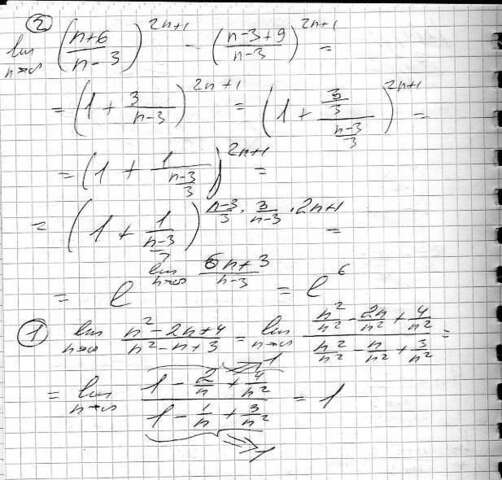 ②
lim n→∞ ((n+6)/(n-3))^(2n+1) - ((n-3+9)/(n-3))^(2n+1) =
= (1 + 3/(n-3))^(2n+1) = (1 + (3/3)/((n-3)/3))^(2n+1) =
= (1 + 1/((n-3)/3))^(2n+1) =
= (1 + 1/((n-3)/3))^((n-3)/3 · 3/(n-3) · 2n+1) =
= e^(lim n→∞ (6n+3)/(n-3)) = e^6
① lim n→∞ (n²-2n+4)/(n²-n+3) = lim n→∞ (n²/n² - 2n/n² + 4/n²)/(n²/n² - n/n² + 3/n²) =
= lim n→∞ (1 - 2/n + 4/n²)→1 / (1 - 1/n + 3/n²)→1 = 1